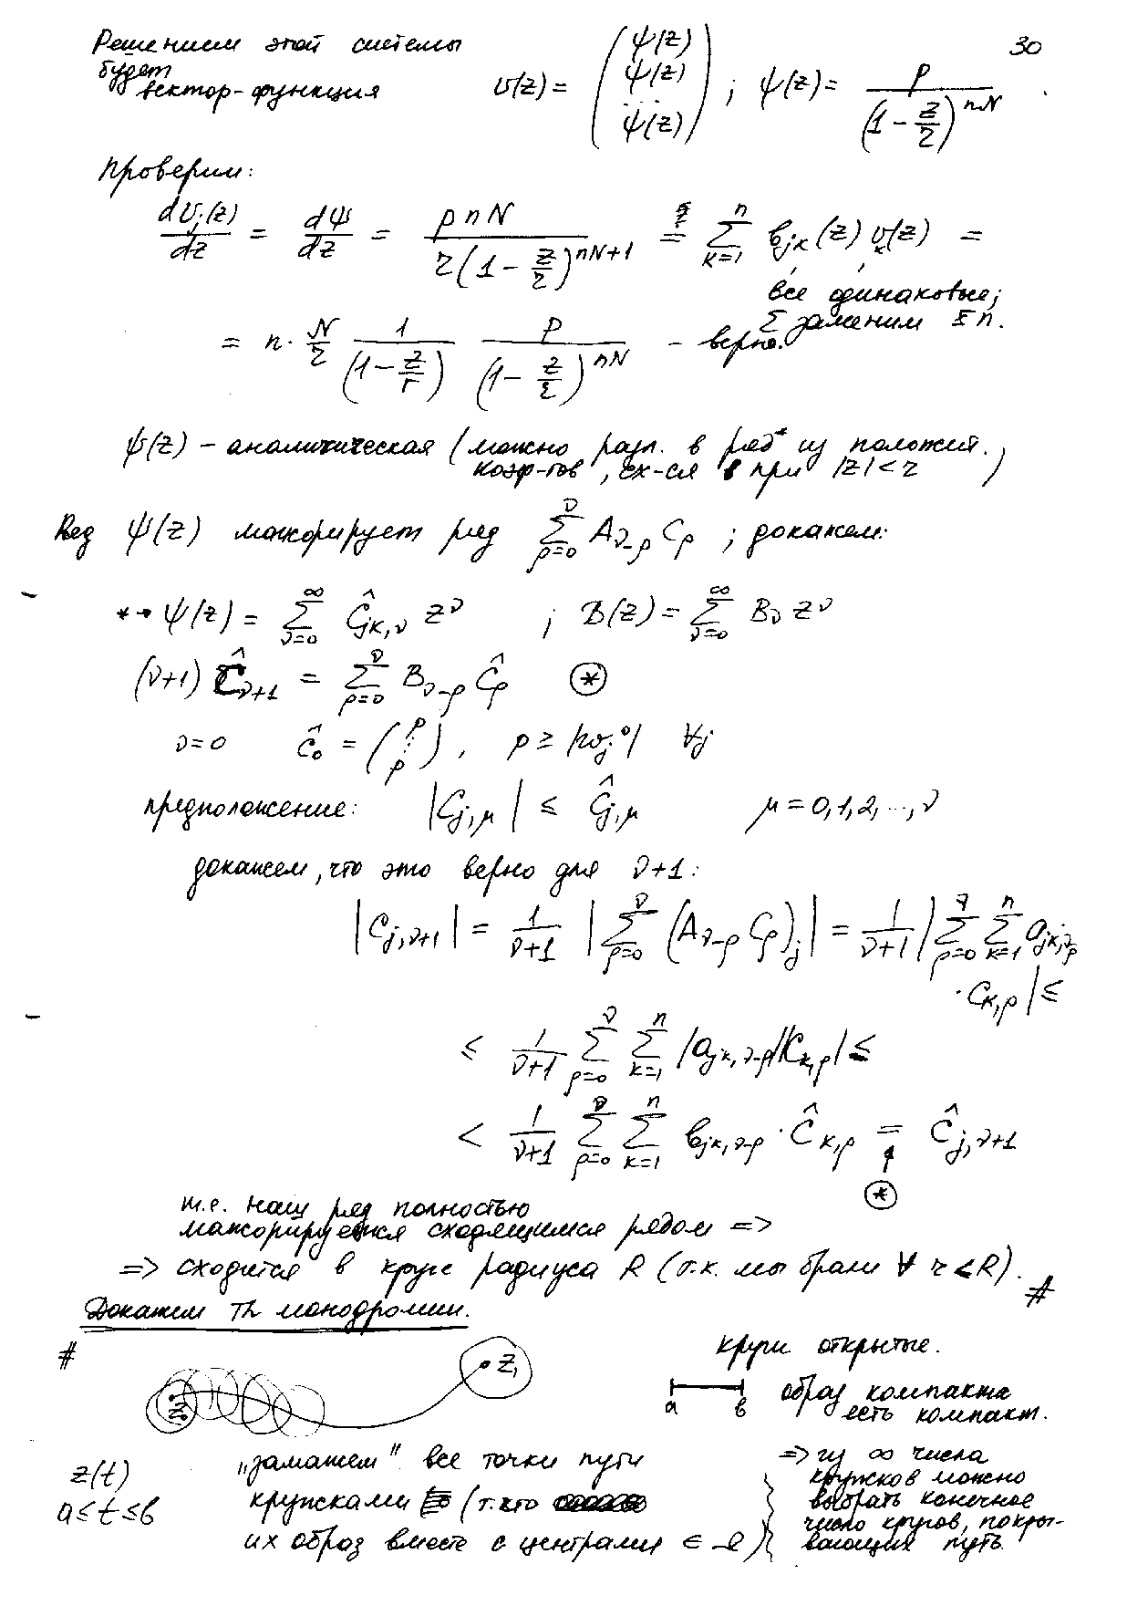 30
Решением этой системы
будет
вектор-функция v(z) = (ψ(z) ψ(z) ... ψ(z)) ; ψ(z) = p / (1 - z/r)^{nN} .
Проверим:
dv_j(z)/dz = dψ/dz = p n N / r(1 - z/r)^{nN+1} =^? Σ_{k=1}^{n} b_{jk}(z) v_k(z) =
все одинаковые;
Σ заменим n.
= n · N/r 1/(1 - z/r) p/(1 - z/r)^{nN} - верно.
ψ(z) - аналитическая (можно разл. в ряд* из положит.
коэф-тов, сх-ся при |z| < r )
Ряд ψ(z) мажорирует ряд Σ_{ρ=0}^{ν} A_{ν-ρ} C_ρ ; докажем:
*→ ψ(z) = Σ_{ν=0}^{∞} Ĉ_{jk,ν} z^ν ; B(z) = Σ_{ν=0}^{∞} B_ν z^ν
(ν+1) Ĉ_{ν+1} = Σ_{ρ=0}^{ν} B_{ν-ρ} Ĉ_ρ ⊛
ν=0 Ĉ_0 = (p ⋮ p) , p ≥ |w_j^0| ∀j
предположение: |C_{j,μ}| ≤ Ĉ_{j,μ} μ = 0,1,2,...,ν
докажем, что это верно для ν+1:
|C_{j,ν+1}| = 1/(ν+1) |Σ_{ρ=0}^{ν} (A_{ν-ρ} C_ρ)_j| = 1/(ν+1) |Σ_{ρ=0}^{ν} Σ_{k=1}^{n} a_{jk,ν-ρ}
· C_{k,ρ}| ≤
≤ 1/(ν+1) Σ_{ρ=0}^{ν} Σ_{k=1}^{n} |a_{jk,ν-ρ}||C_{k,ρ}| ≤
< 1/(ν+1) Σ_{ρ=0}^{ν} Σ_{k=1}^{n} b_{jk,ν-ρ} · Ĉ_{k,ρ} = Ĉ_{j,ν+1}
⊛
т.е. наш ряд полностью
мажорируется сходящимся рядом =>
=> сходится в круге радиуса R (т.к. мы брали ∀ r < R). #
Докажем Th монодромии.
#
z_0 z_1
круги открытые.
a b образ компакта
есть компакт.
z(t)
a ≤ t ≤ b
"замажем" все точки пути
кружками (т. что
их образ вместе с центрами ∈ Ω)
=> из ∞ числа
кружков можно
выбрать конечное
число кругов, покры-
вающих путь.